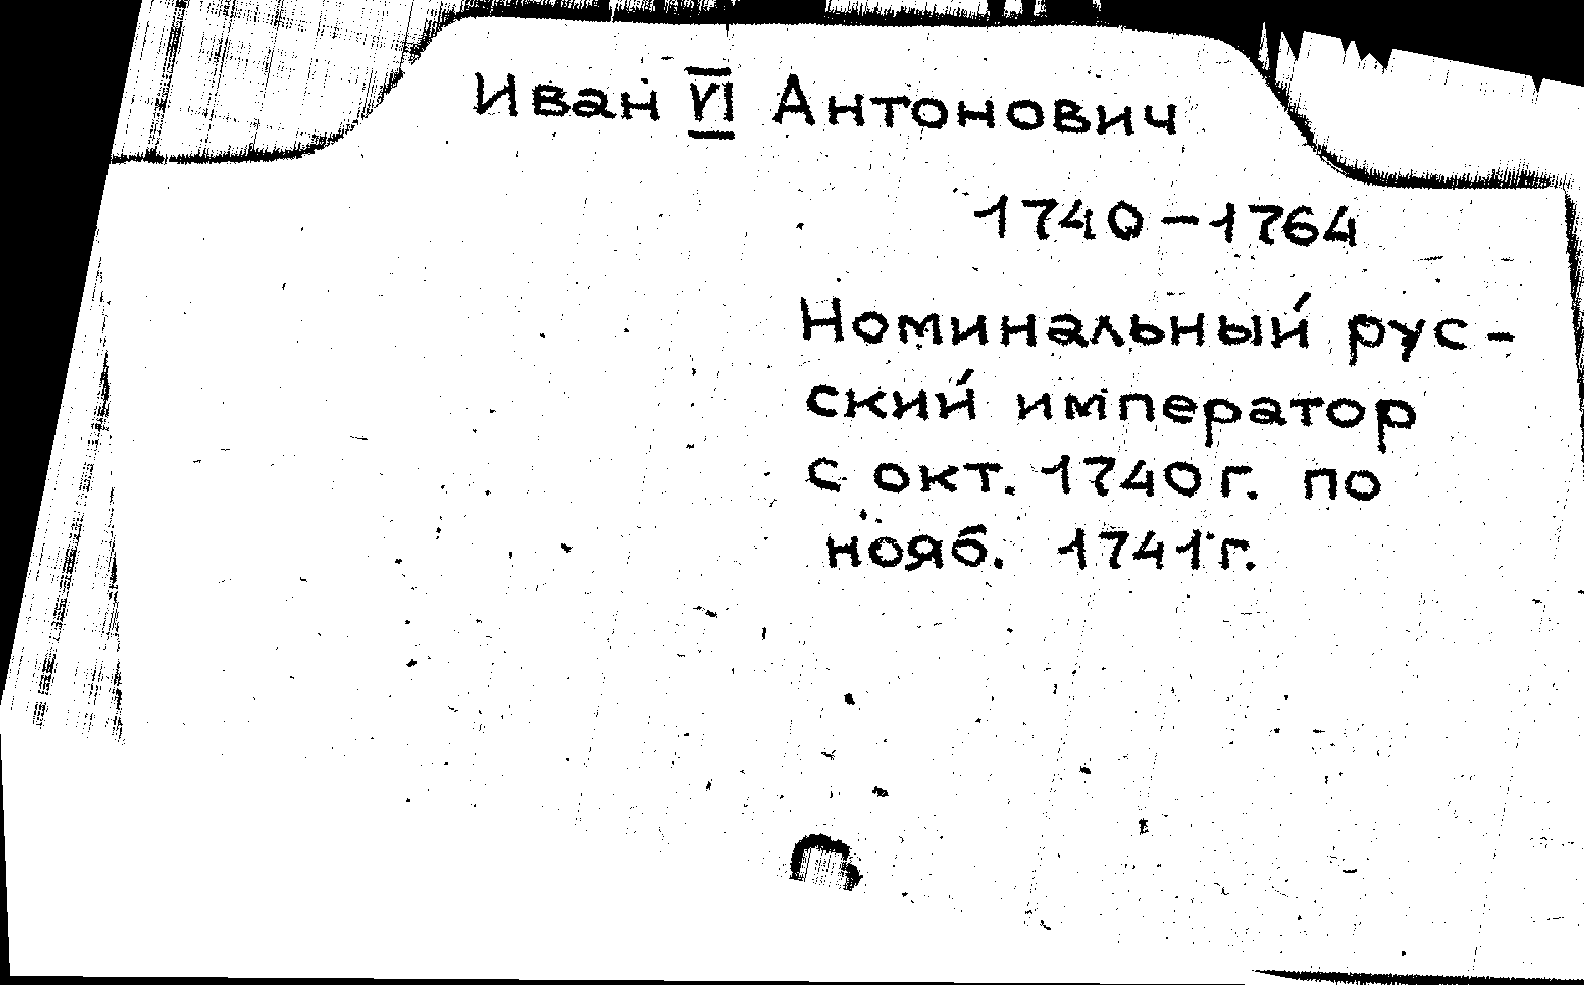 Иван VI Антонович
1740-1764
Номинальный рус-
ский император
с окт. 1740 г. по
нояб. 1741 г.